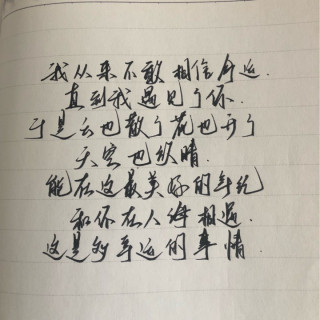 我从来不敢相信命运.
直到我遇见了你.
于是云也散了花也开了
天空也放晴.
能在这最美好的年纪
和你在人海相遇.
这是多幸运的事情.